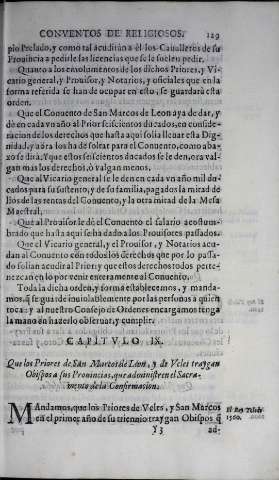 CONVENTOS DE RELIGIOSOS. 129
pio Prelado, y como tal acudirán a él los Caualleros de su
Prouincia a pedirle las licencias que se le suelen pedir.
Quanto a los emolumentos de los dichos Priores, y Vi-
cario general, y Prouisor, y Notarios, y oficiales que en la
forma referida se han de ocupar en esto, se guardará esta
orden.
Que el Conuento de San Marcos de Leon aya de dar, y
dè en cada vn año al Prior seiscientos ducados, en conside-
racion de los derechos que hasta aqui solia lleuar esta Dig-
nidad, y aora los ha de soltar para el Conuento, como aba-
xo se dirà. Y que estos seiscientos ducados se le den, ora val-
gan mas los derechos, ò valgan menos.
Que al Vicario general se le den en cada vn año mil du-
cados para su sustento, y de su familia, pagados la mitad de
llos de las rentas del Conuento, y la otra mitad de la Mesa
Maestral.
Que al Prouisor le dè el Conuento el salario acostum-
brado que hasta aqui se ha dado a los Prouisores passados.
Que el Vicario general, y el Prouisor, y Notarios acu-
dan al Conuento con todos los derechos que por lo passa-
do solian acudir al Prior; y que estos derechos todos perte-
nezcan en lo por venir enteramente al Conuento.
Toda la dicha orden, y forma establecemos, y manda-
mos, q̃ se guarde inuiolablemente por las personas a quien
toca: y al nuestro Consejo de Ordenes encargamos tenga
la mano en hazerlo obseruar, y cumplir.
CAPITVLO IX.
Que los Priores de San Marcos de Leon, y de Veles traygan
Obispos a sus Prouincias, que administren el Sacra-
mento de la Confirmacion.
MAndamos, que los Priores de Veles, y San Marcos
en el primer año de su trienio traygan Obispos q̃
El Rey
1560.
Y 3 ad-